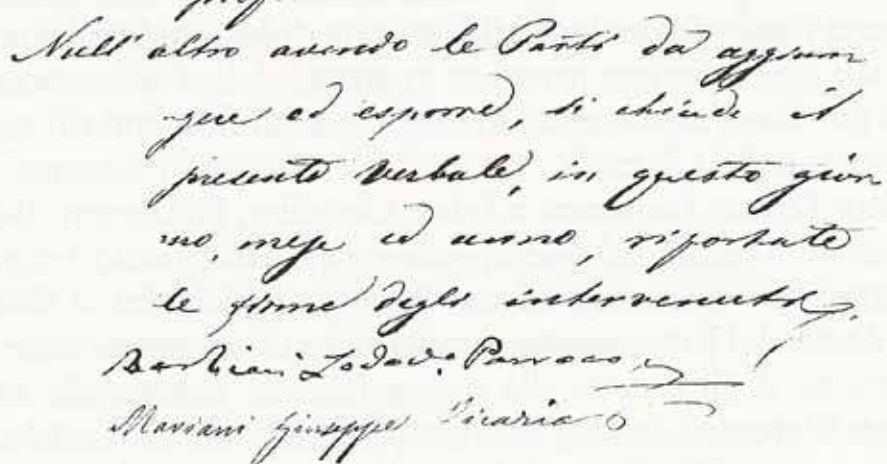 Null' altro avendo le Parti da aggiun
gere ed esporre, si chiude il
presente Verbale, in questo gior
no, mese ed anno, riportate
le firme degli intervenuti.
Bastiani Lodov.º Parroco
Mariani Giuseppe Vicario